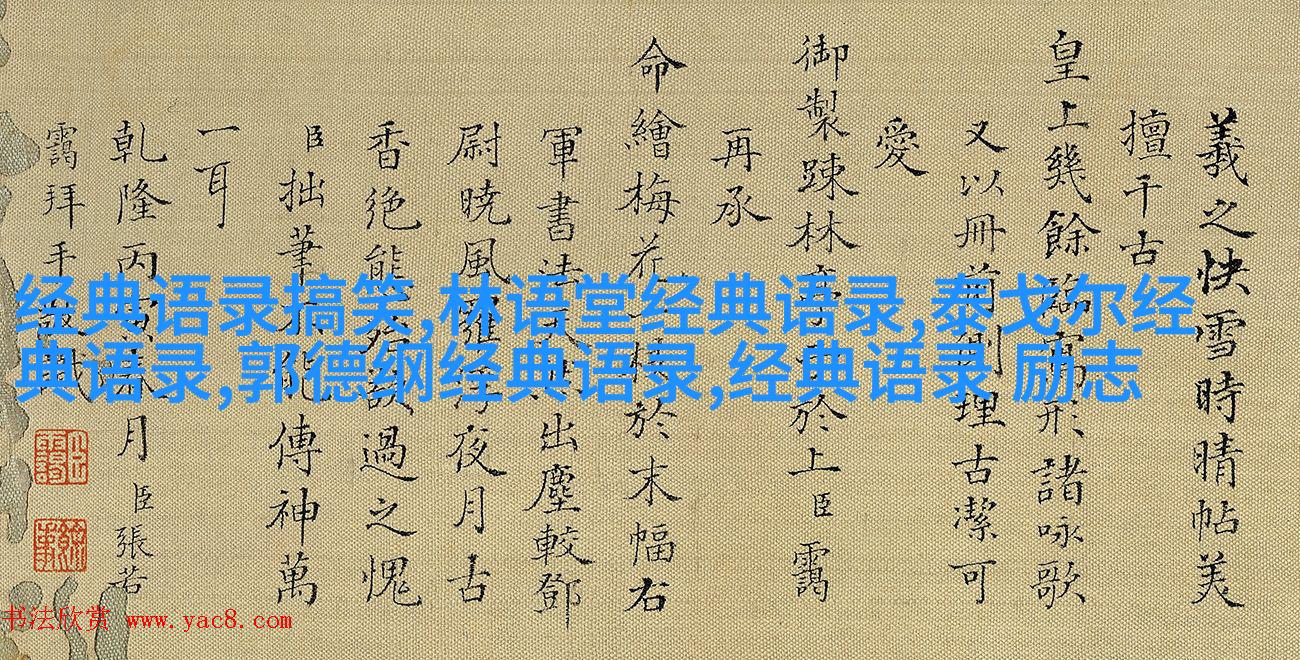 羲之快雪時晴帖美
擅千古
皇上幾餘臨寫形諸咏歌
又以冊前側理古潔可
愛
御製踈林於上臣靄
再承
命繪梅花一枝於末幅右
軍書法出塵較鄧
尉曉風羅浮夜月古
香絶態過之愧
臣拙筆不能傳神萬
一耳
乾隆丙寅春月臣張若
靄拜手敬識
经典语录搞笑,林语堂经典语录,泰戈尔经
典语录,郭德纲经典语录,经典语录 励志
书法欣赏 www.yac8.com